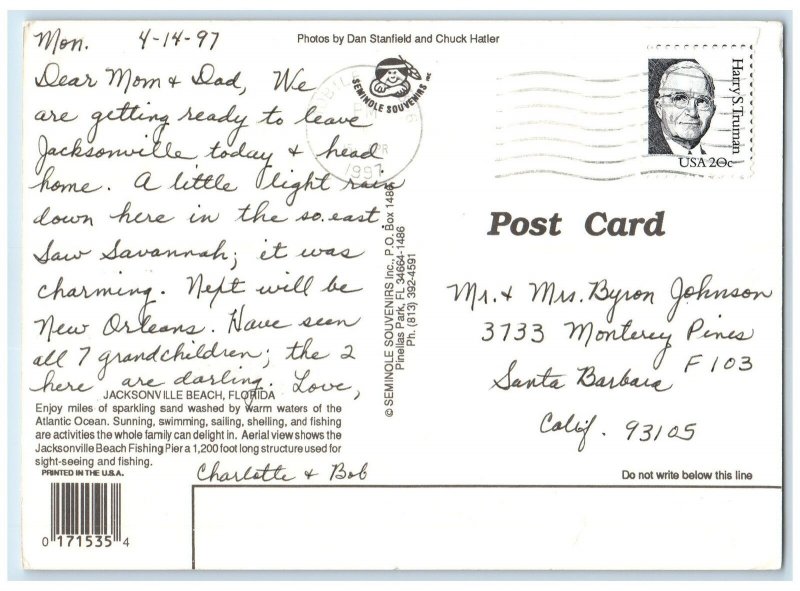 Mon. 4-14-97
Photos by Dan Stanfield and Chuck Hatler
Dear Mom & Dad, We
are getting ready to leave
Jacksonville today & head
home. A little light rain
down here in the so. east.
Saw Savannah; it was
charming. Next will be
New Orleans. Have seen
all 7 grandchildren; the 2
here are darling. Love,
Charlotte & Bob
JACKSONVILLE BEACH, FLORIDA
Enjoy miles of sparkling sand washed by warm waters of the
Atlantic Ocean. Sunning, swimming, sailing, shelling, and fishing
are activities the whole family can delight in. Aerial view shows the
Jacksonville Beach Fishing Pier a 1,200 foot long structure used for
sight-seeing and fishing.
PRINTED IN THE U.S.A.
0 171535 4
SEMINOLE SOUVENIRS INC
1997
© SEMINOLE SOUVENIRS Inc., P.O. Box 1486
Pinellas Park, FL 34664-1486
Ph. (813) 392-4591
Harry S. Truman
USA 20c
Post Card
Mr. & Mrs. Byron Johnson
3733 Monterey Pines
F 103
Santa Barbara
Calif. 93105
Do not write below this line